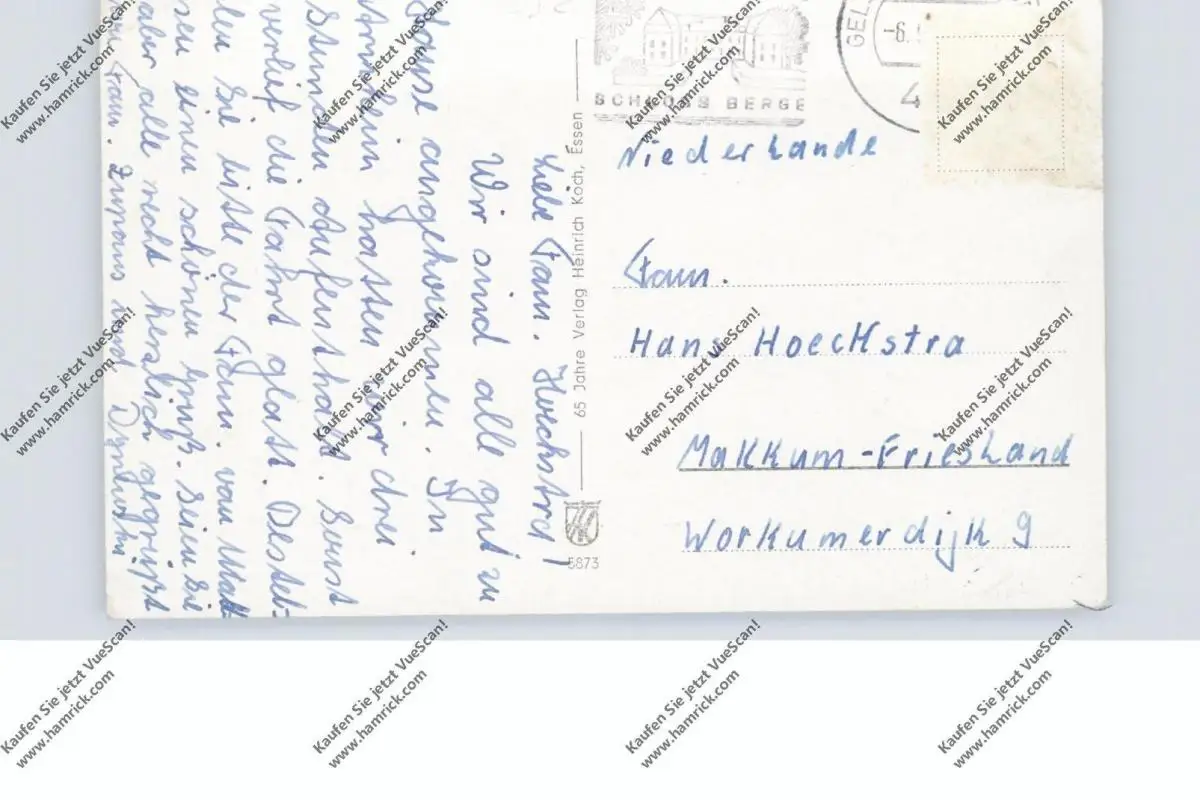 Liebe Fam. Hoechstra!
Wir sind alle gut zu
Hause angekommen. In
Arnheim hatten wir drei
Stunden Aufenthalt. Sonst
verlief die Fahrt glatt. Bestel-
len Sie bitte der Fam. van Mat-
sen einen schönen Gruß. Seien Sie
aber alle recht herzlich gegrüßt
Fam. und
65 Jahre Verlag Heinrich Koch, Essen
5873
SCHLOSS BERGE
GEL
-6.
4
Niederlande
Fam.
Hans Hoeckstra
Makkum-Friesland
Workumerdijk 9
Kaufen Sie jetzt VueScan!
www.hamrick.com
Kaufen Sie jetzt VueScan!
www.hamrick.com
Kaufen Sie jetzt VueScan!
www.hamrick.com
Kaufen Sie jetzt VueScan!
www.hamrick.com
Kaufen Sie jetzt VueScan!
www.hamrick.com
Kaufen Sie jetzt VueScan!
www.hamrick.com
Kaufen Sie jetzt VueScan!
www.hamrick.com
Kaufen Sie jetzt VueScan!
www.hamrick.com
Kaufen Sie jetzt VueScan!
www.hamrick.com
Kaufen Sie jetzt VueScan!
www.hamrick.com
Kaufen Sie jetzt VueScan!
www.hamrick.com
Kaufen Sie jetzt VueScan!
www.hamrick.com